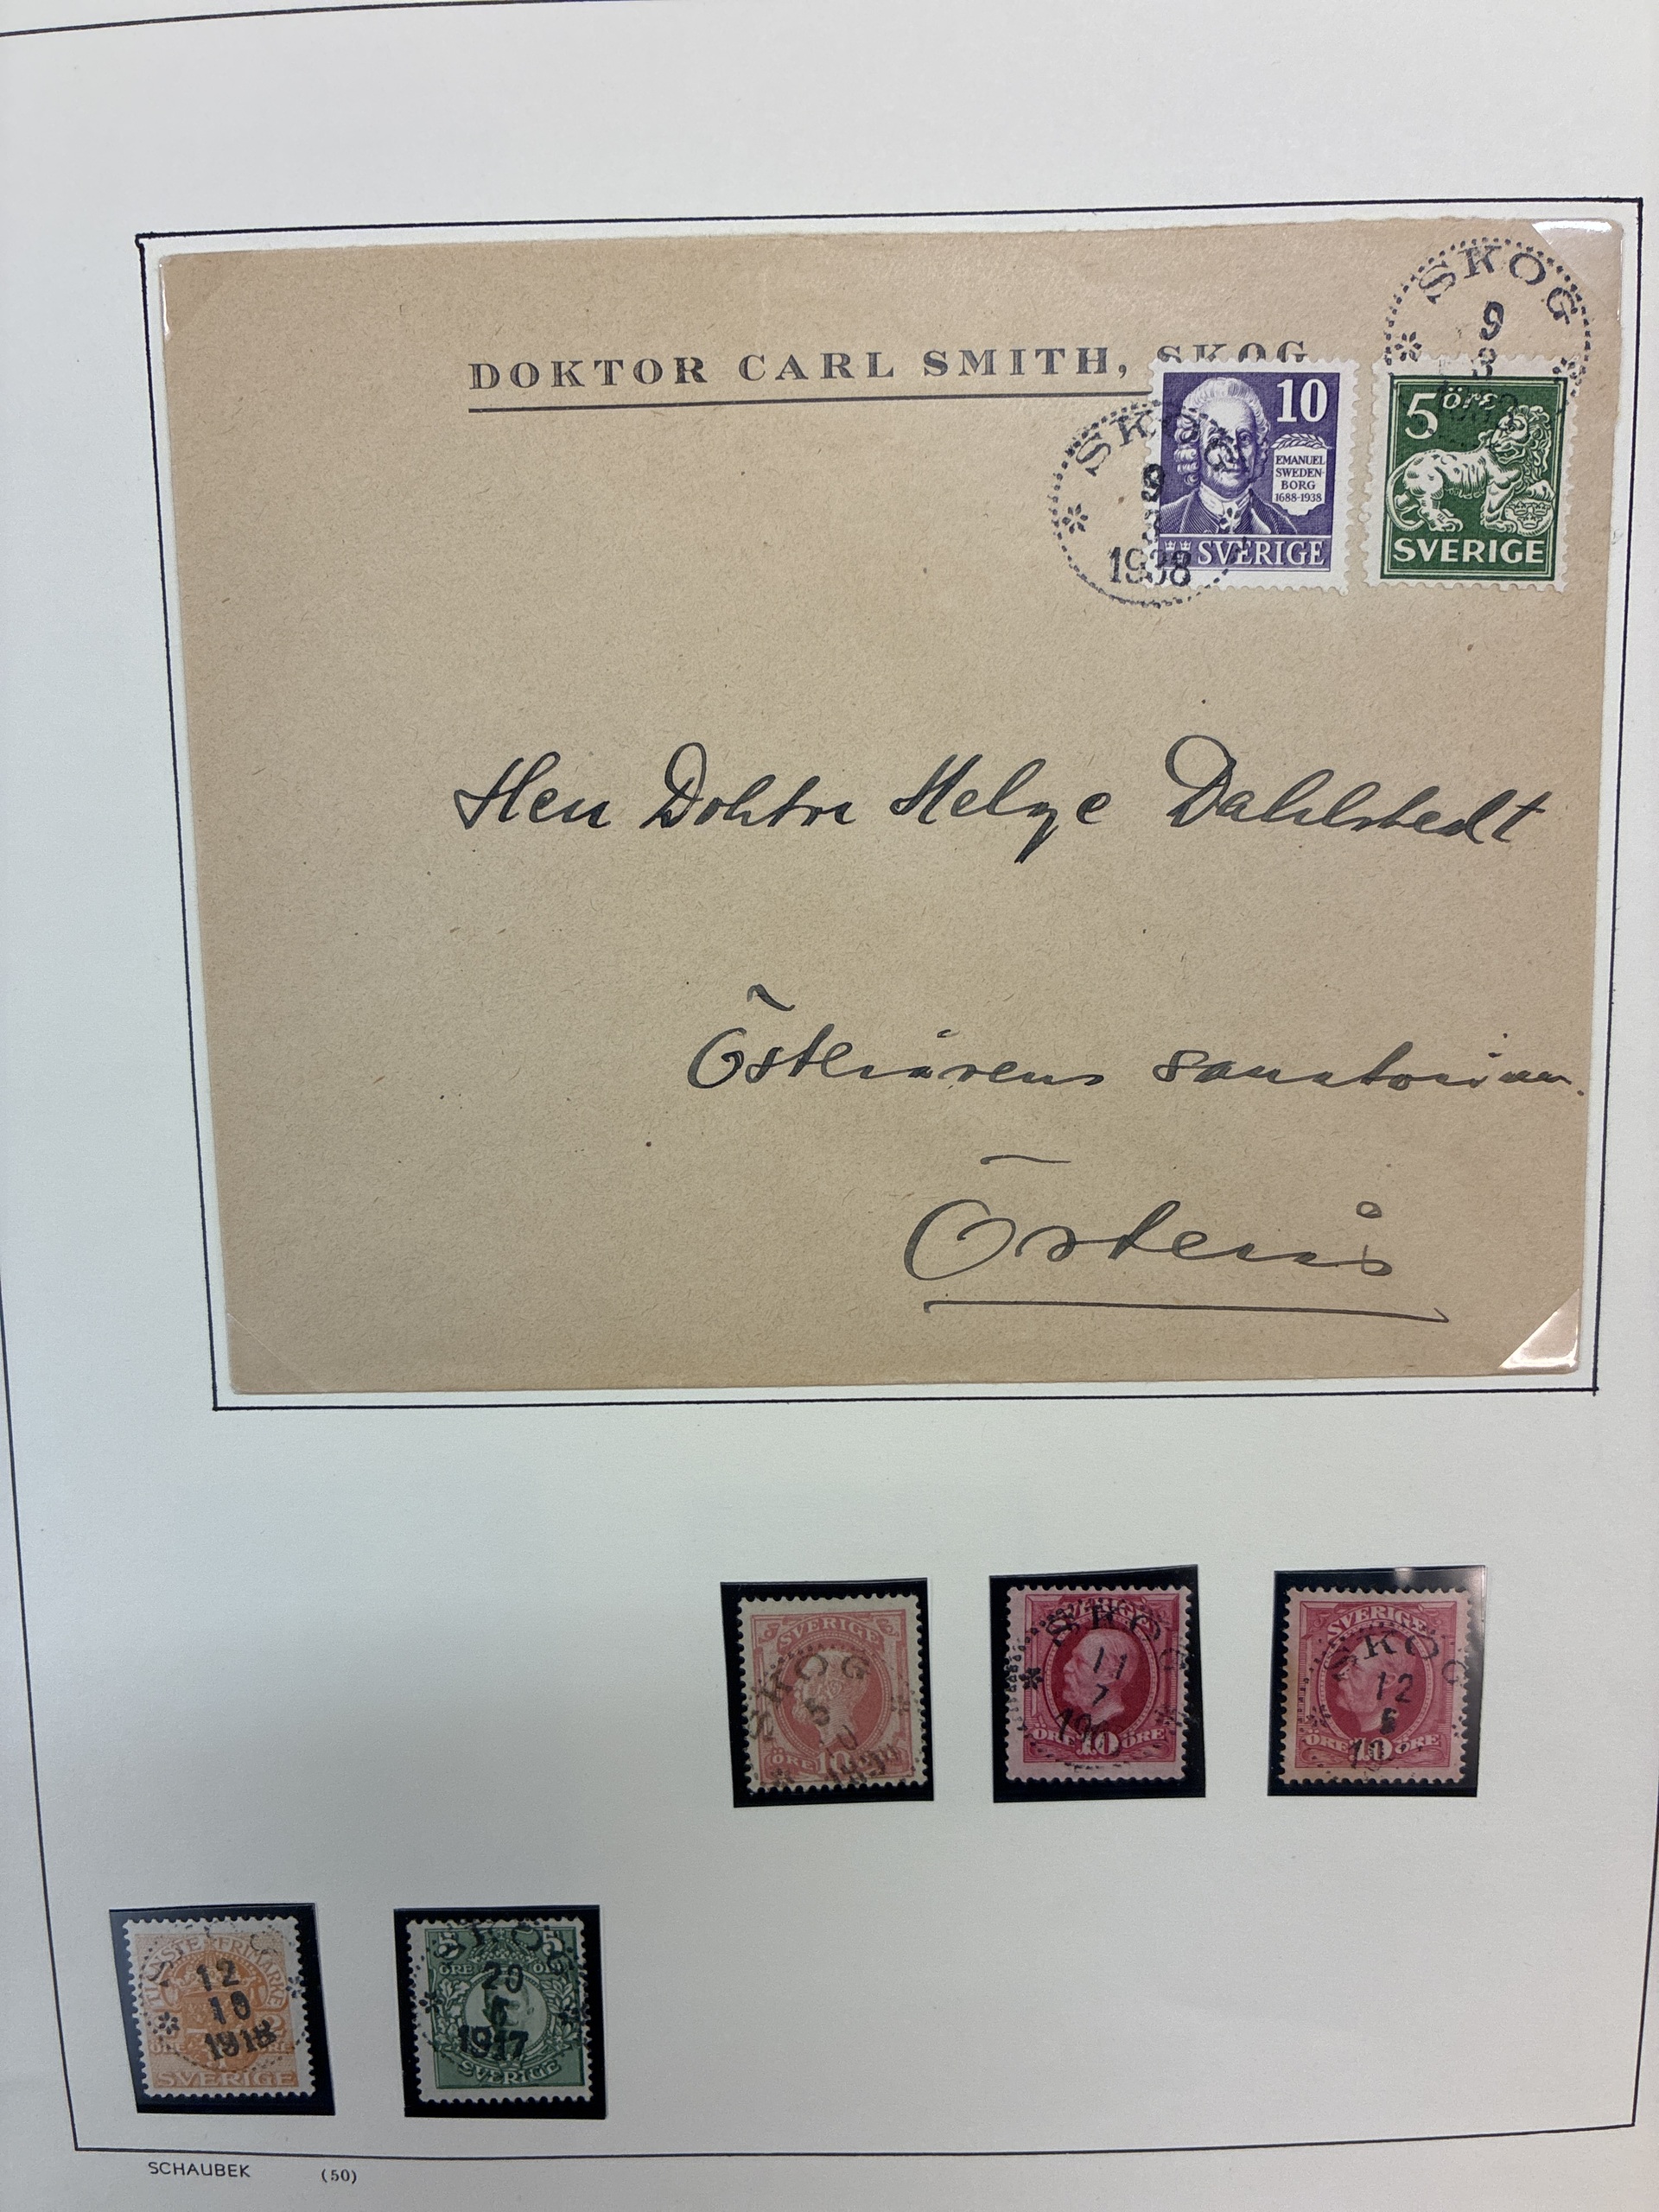 DOKTOR CARL SMITH, SKOG
SKOG
9
SKOG
9
1938
10
EMANUEL
SWEDEN-
BORG
1688-1938
SVERIGE
5 öre
SVERIGE
Herr Doktor Helge Dahlstedt
Österåsens sanatorium.
Österås
SVERIGE
SKOG
5
ÖRE 10
SKOG
11
7
ÖRE 10 ÖRE
SVERIGE
SKOG
12
ÖRE 10 ÖRE
TJÄNSTE FRIMÄRKE
12
10
1918
SVERIGE
5 5
ÖRE
SKOG
20
1917
SVERIGE
SCHAUBEK (50)